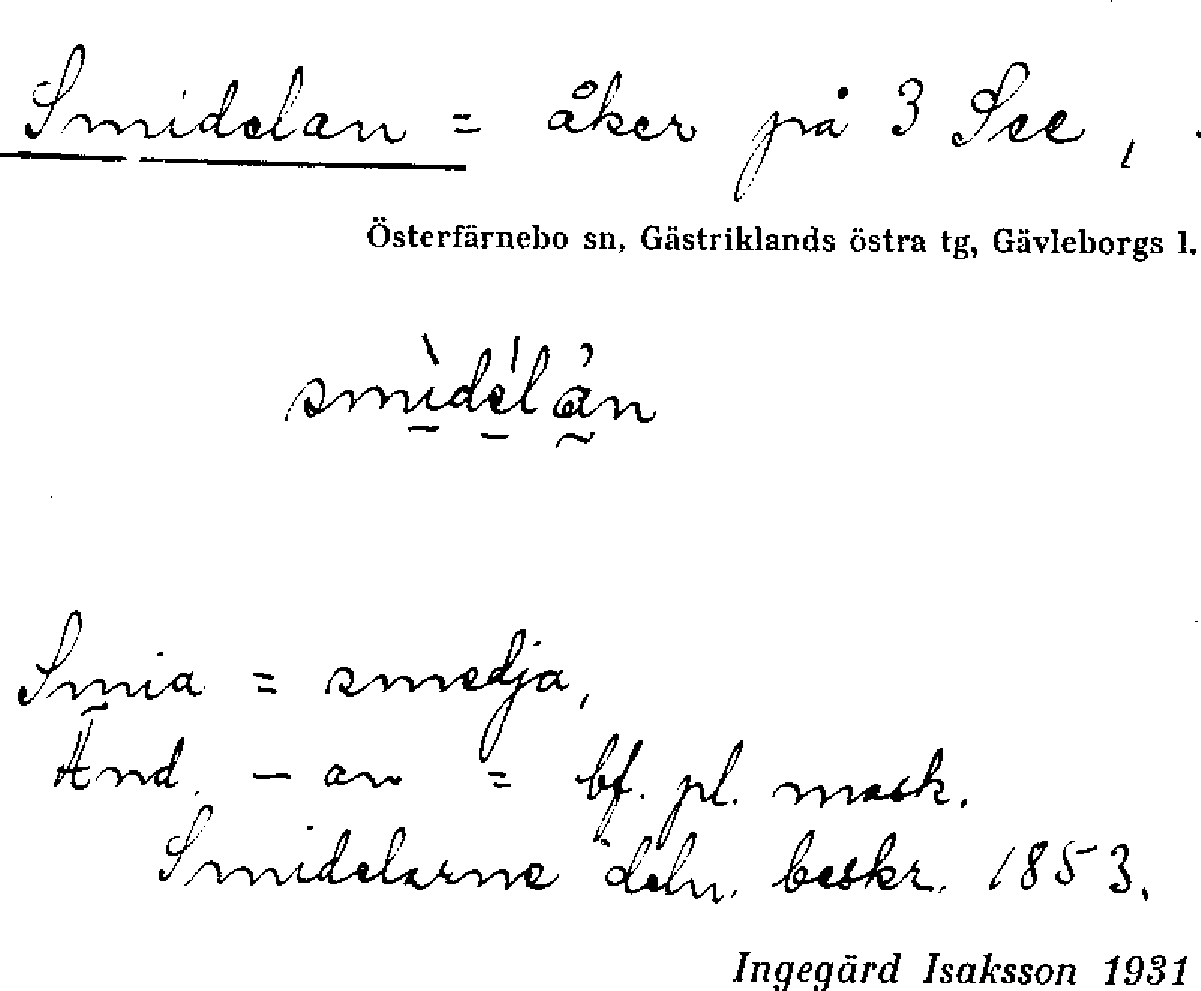 Smidelan = åker på 3 See,
Österfärnebo sn, Gästriklands östra tg, Gävleborgs l.
smìdélån
Smia = smedja,
Änd. - an = bf. pl. mask.
Smidelarne deln. beskr. 1853.
Ingegärd Isaksson 1931